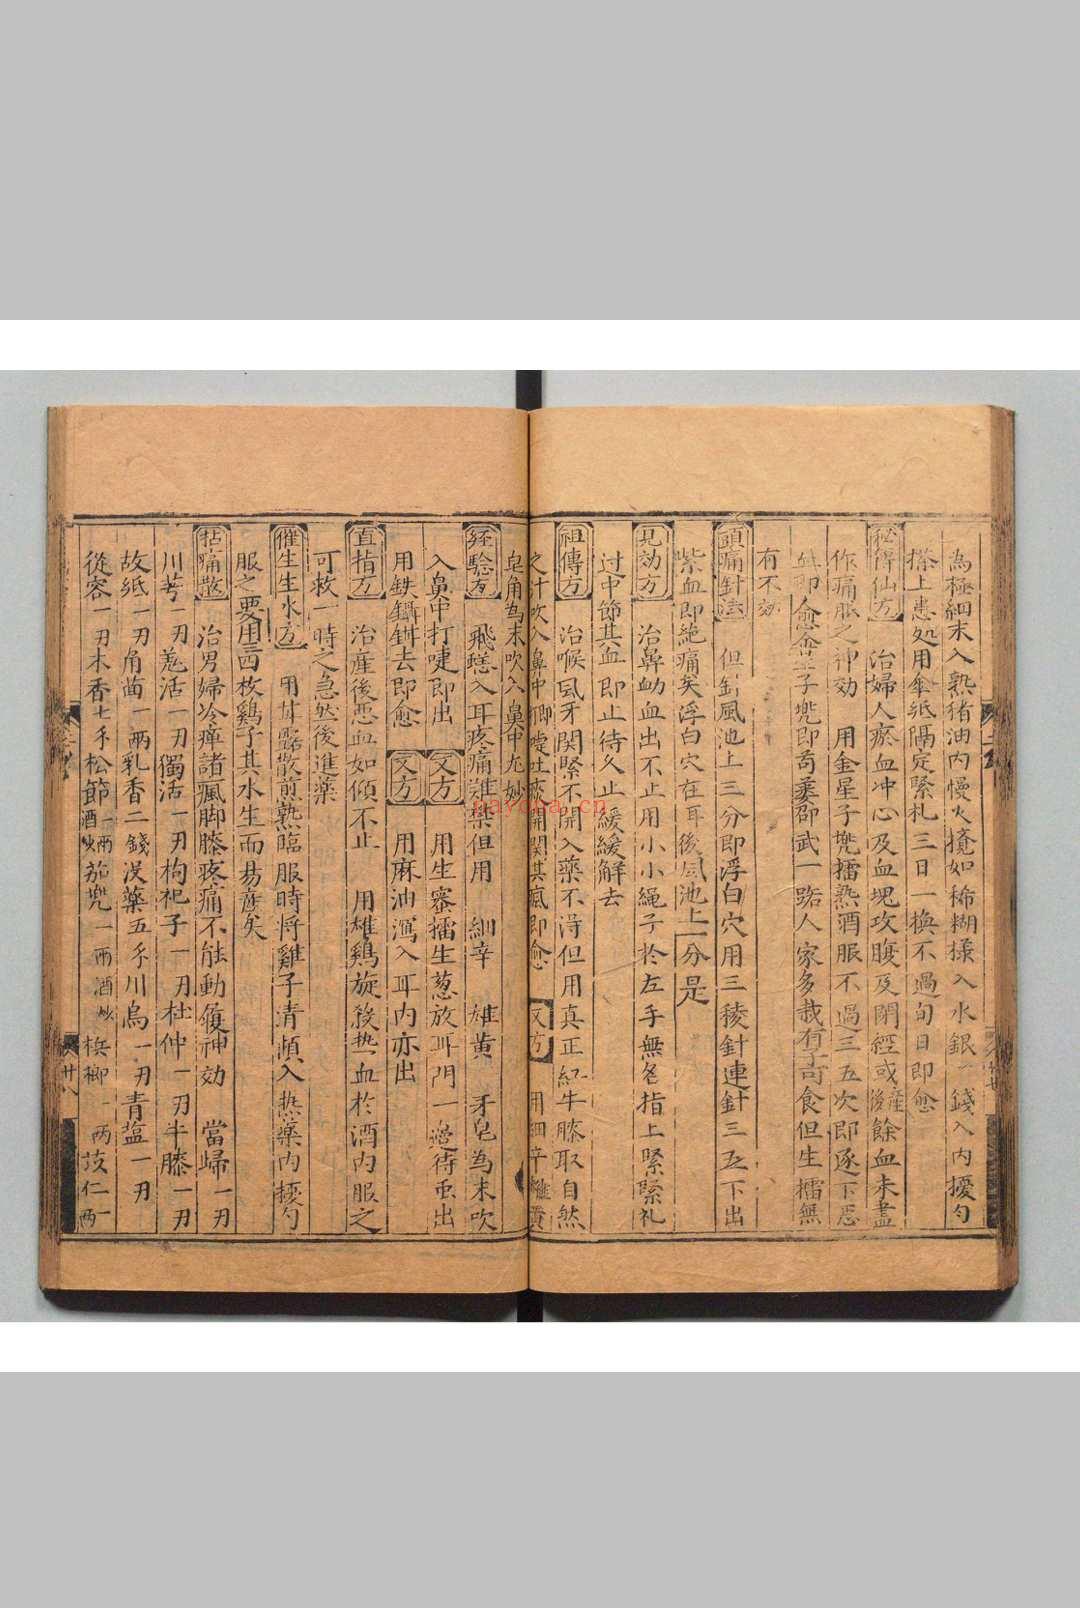 為極細末入熟猪油內慢火攪如稀糊樣入水銀一錢入內擾勻
搽上患処用傘紙隔定緊札三日一換不過旬日即愈
秘傳仙方 治婦人瘀血冲心及血塊攻腹及閉經或產後餘血未盡
作痛脹之神効 用金星子兠擂熟酒服不過三五次即逐下惡
血即愈 子兠即 邵武一路人家多栽有子可食但生擂無
有不効
頭痛針法 但針風池上三分即浮白穴用三稜針連針三五下出
紫血即絕痛矣浮白穴在耳後風池上一分是
見効方 治鼻衂血出不止用小小繩子於左手無名指上緊緊札
过中節其血即止待久止緩緩解去
祖傳方 治喉風牙関緊不開入藥不淂但用真正紅牛膝取自然
之汁吹入鼻中即嚏吐痰開関其瘋即愈 又方 用細辛雄黃
皂角為末吹入鼻中尤妙
経驗方 飛蟮入耳疼痛难禁但用 細辛 雄黃 牙皂為末吹
入鼻中打嚏即出 又方 用生蜜擂生葱放耳門一邊待虫出
用鉄鑷鉗去即愈 又方 用麻油瀉入耳內亦出
直指方 治產後惡血如傾不止 用雄鷄旋殺热血於酒內服之
可救一時之急然後進藥
催生生水方 用甘露散煎熟臨服時将雞子清頓入热藥內擾勻
服之要用三四枚鷄子其水生而易產矣
拈痛散 治男婦冷痺諸瘋脚膝疼痛不能動履神効 當歸一刃
川芎一刃羌活一刃獨活一刃枸杞子一刃杜仲一刃牛膝一刃
故紙一刃角茴一兩乳香二錢没藥五分川烏一刃青盐一刃
從容一刃木香七分松節一兩酒炒茄兠一兩酒炒檳榔一兩苡仁一兩
巻之
廿八
nayona.cn